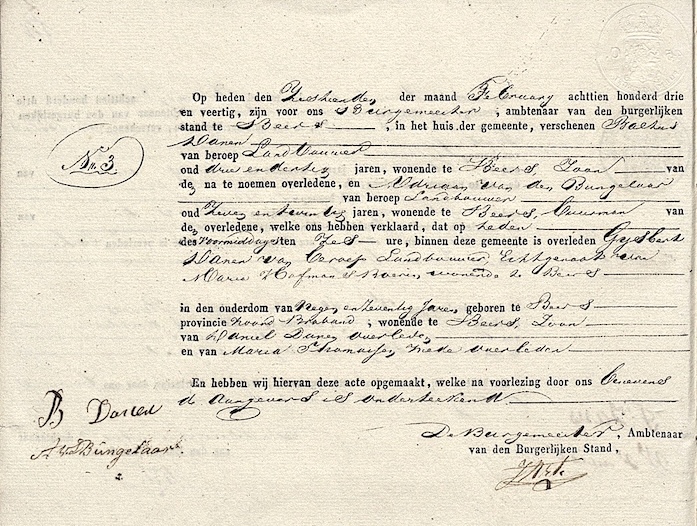 Op heden den Zestienden der maand February achttien honderd drie
en veertig, zijn voor ons Burgemeester, ambtenaar van den burgerlijken
stand te Beers, in het huis der gemeente, verschenen
No. 3
Danen
van beroep Landbouwer
oud drie en dertig jaren, wonende te Beers Zoon van
de na te noemen overledene, en Adriaan van den Bungelaar
van beroep Landbouwer
oud Zeven en jaren, wonende te Beers van
de overledene, welke ons hebben verklaard, dat op heden
des voormiddags ten Zes ure, binnen deze gemeente is overleden Gysbert
Danen van beroep Landbouwer, Echtgenoot van
Maria wonende te Beers
in den ouderdom van Negen en Zeventig Jaren, geboren te Beers
provincie Noord Braband, wonende te Beers, Zoon
van Daniel Danen overleden
en van Maria Thomassen, mede overleden
En hebben wij hiervan deze acte opgemaakt, welke na voorlezing door ons benevens
de aangevers is onderteekend
B Danen
A v d Bungelaar
De Burgemeester, Ambtenaar
van den Burgerlijken Stand,